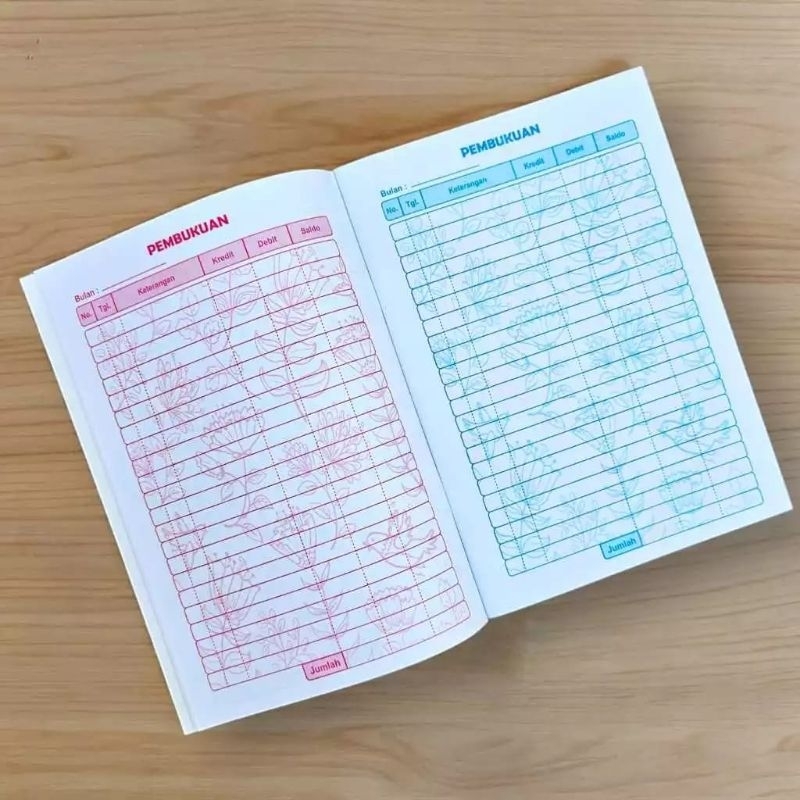 PEMBUKUAN
Bulan :
No. Tgl. Keterangan Kredit Debit Saldo
Jumlah
PEMBUKUAN
Bulan :
No. Tgl. Keterangan Kredit Debit Saldo
Jumlah